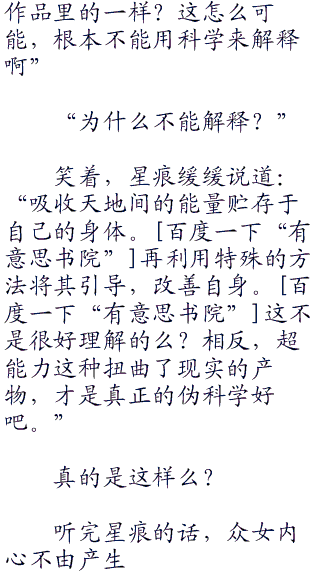 作品里的一样？这怎么可
能，根本不能用科学来解释
啊”
“为什么不能解释？”
笑着，星痕缓缓说道：
“吸收天地间的能量贮存于
自己的身体。[百度一下“有
意思书院”]再利用特殊的方
法将其引导，改善自身。[百
度一下“有意思书院”]这不
是很好理解的么？相反，超
能力这种扭曲了现实的产
物，才是真正的伪科学好
吧。”
真的是这样么？
听完星痕的话，众女内
心不由产生